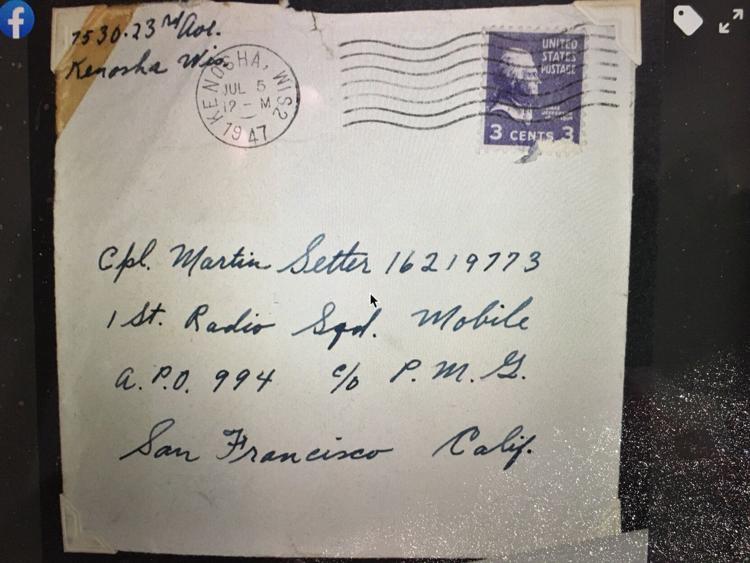 7530-23rd Ave.
Kenosha Wis.
KENOSHA, WIS2
JUL 5
12 - M
1947
UNITED
STATES
POSTAGE
3 CENTS 3
Cpl. Martin Setter 16219773
1 St. Radio Sqd. Mobile
A.P.O. 994 c/o P.M.G.
San Francisco Calif.